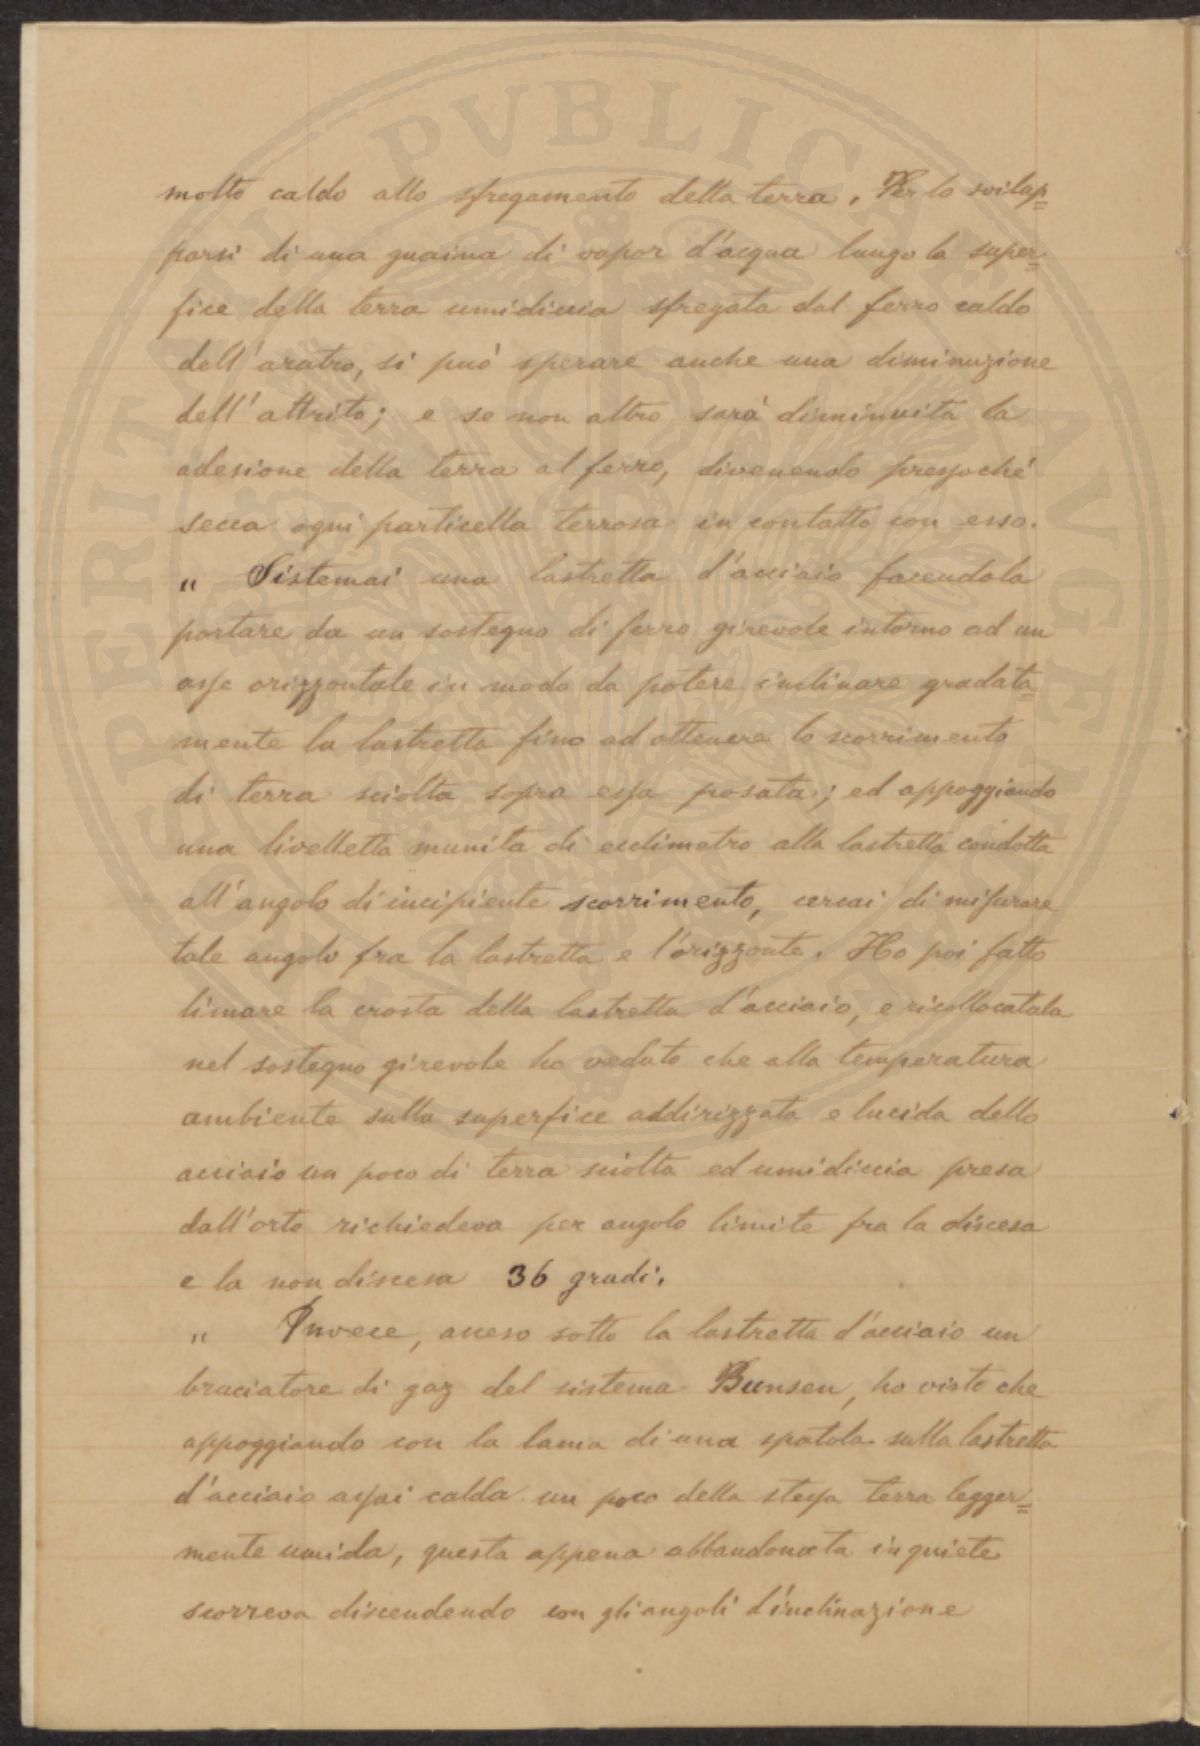 molto caldo allo sfregamento della terra. Per lo svilup=
parsi di una guaina di vapor d'acqua lungo la super=
fice della terra umidiccia sfregata dal ferro caldo
dell'aratro, si può sperare anche una diminuzione
dell'attrito; e se non altro sarà diminuita la
adesione della terra al ferro, divenendo pressoché
secca ogni particella terrosa in contatto con esso.
" Sistemai una lastretta d'acciaio facendola
portare da un sostegno di ferro girevole intorno ad un
asse orizzontale in modo da potere inclinare gradata=
mente la lastretta fino ad ottenere lo scorrimento
di terra sciolta sopra essa posata; ed appoggiando
una livelletta munita di ecclimetro alla lastretta condotta
all'angolo di incipiente scorrimento, cercai di misurare
tale angolo fra la lastretta e l'orizzonte. Ho poi fatto
limare la crosta della lastretta d'acciaio, e ricollocatala
nel sostegno girevole ho veduto che alla temperatura
ambiente sulla superfice addirizzata e lucida dello
acciaio un poco di terra sciolta ed umidiccia presa
dall'orto richiedeva per angolo limite fra la discesa
e la non discesa 36 gradi.
" Invece, acceso sotto la lastretta d'acciaio un
bracciatore di gaz del sistema Bunsen, ho visto che
appoggiando con la lama di una spatola sulla lastretta
d'acciaio assai calda un poco della stessa terra legger=
mente umida, questa appena abbandonata in quiete
scorreva discendendo con gli angoli d'inclinazione
PERITATI PVBLICAE AVGEN